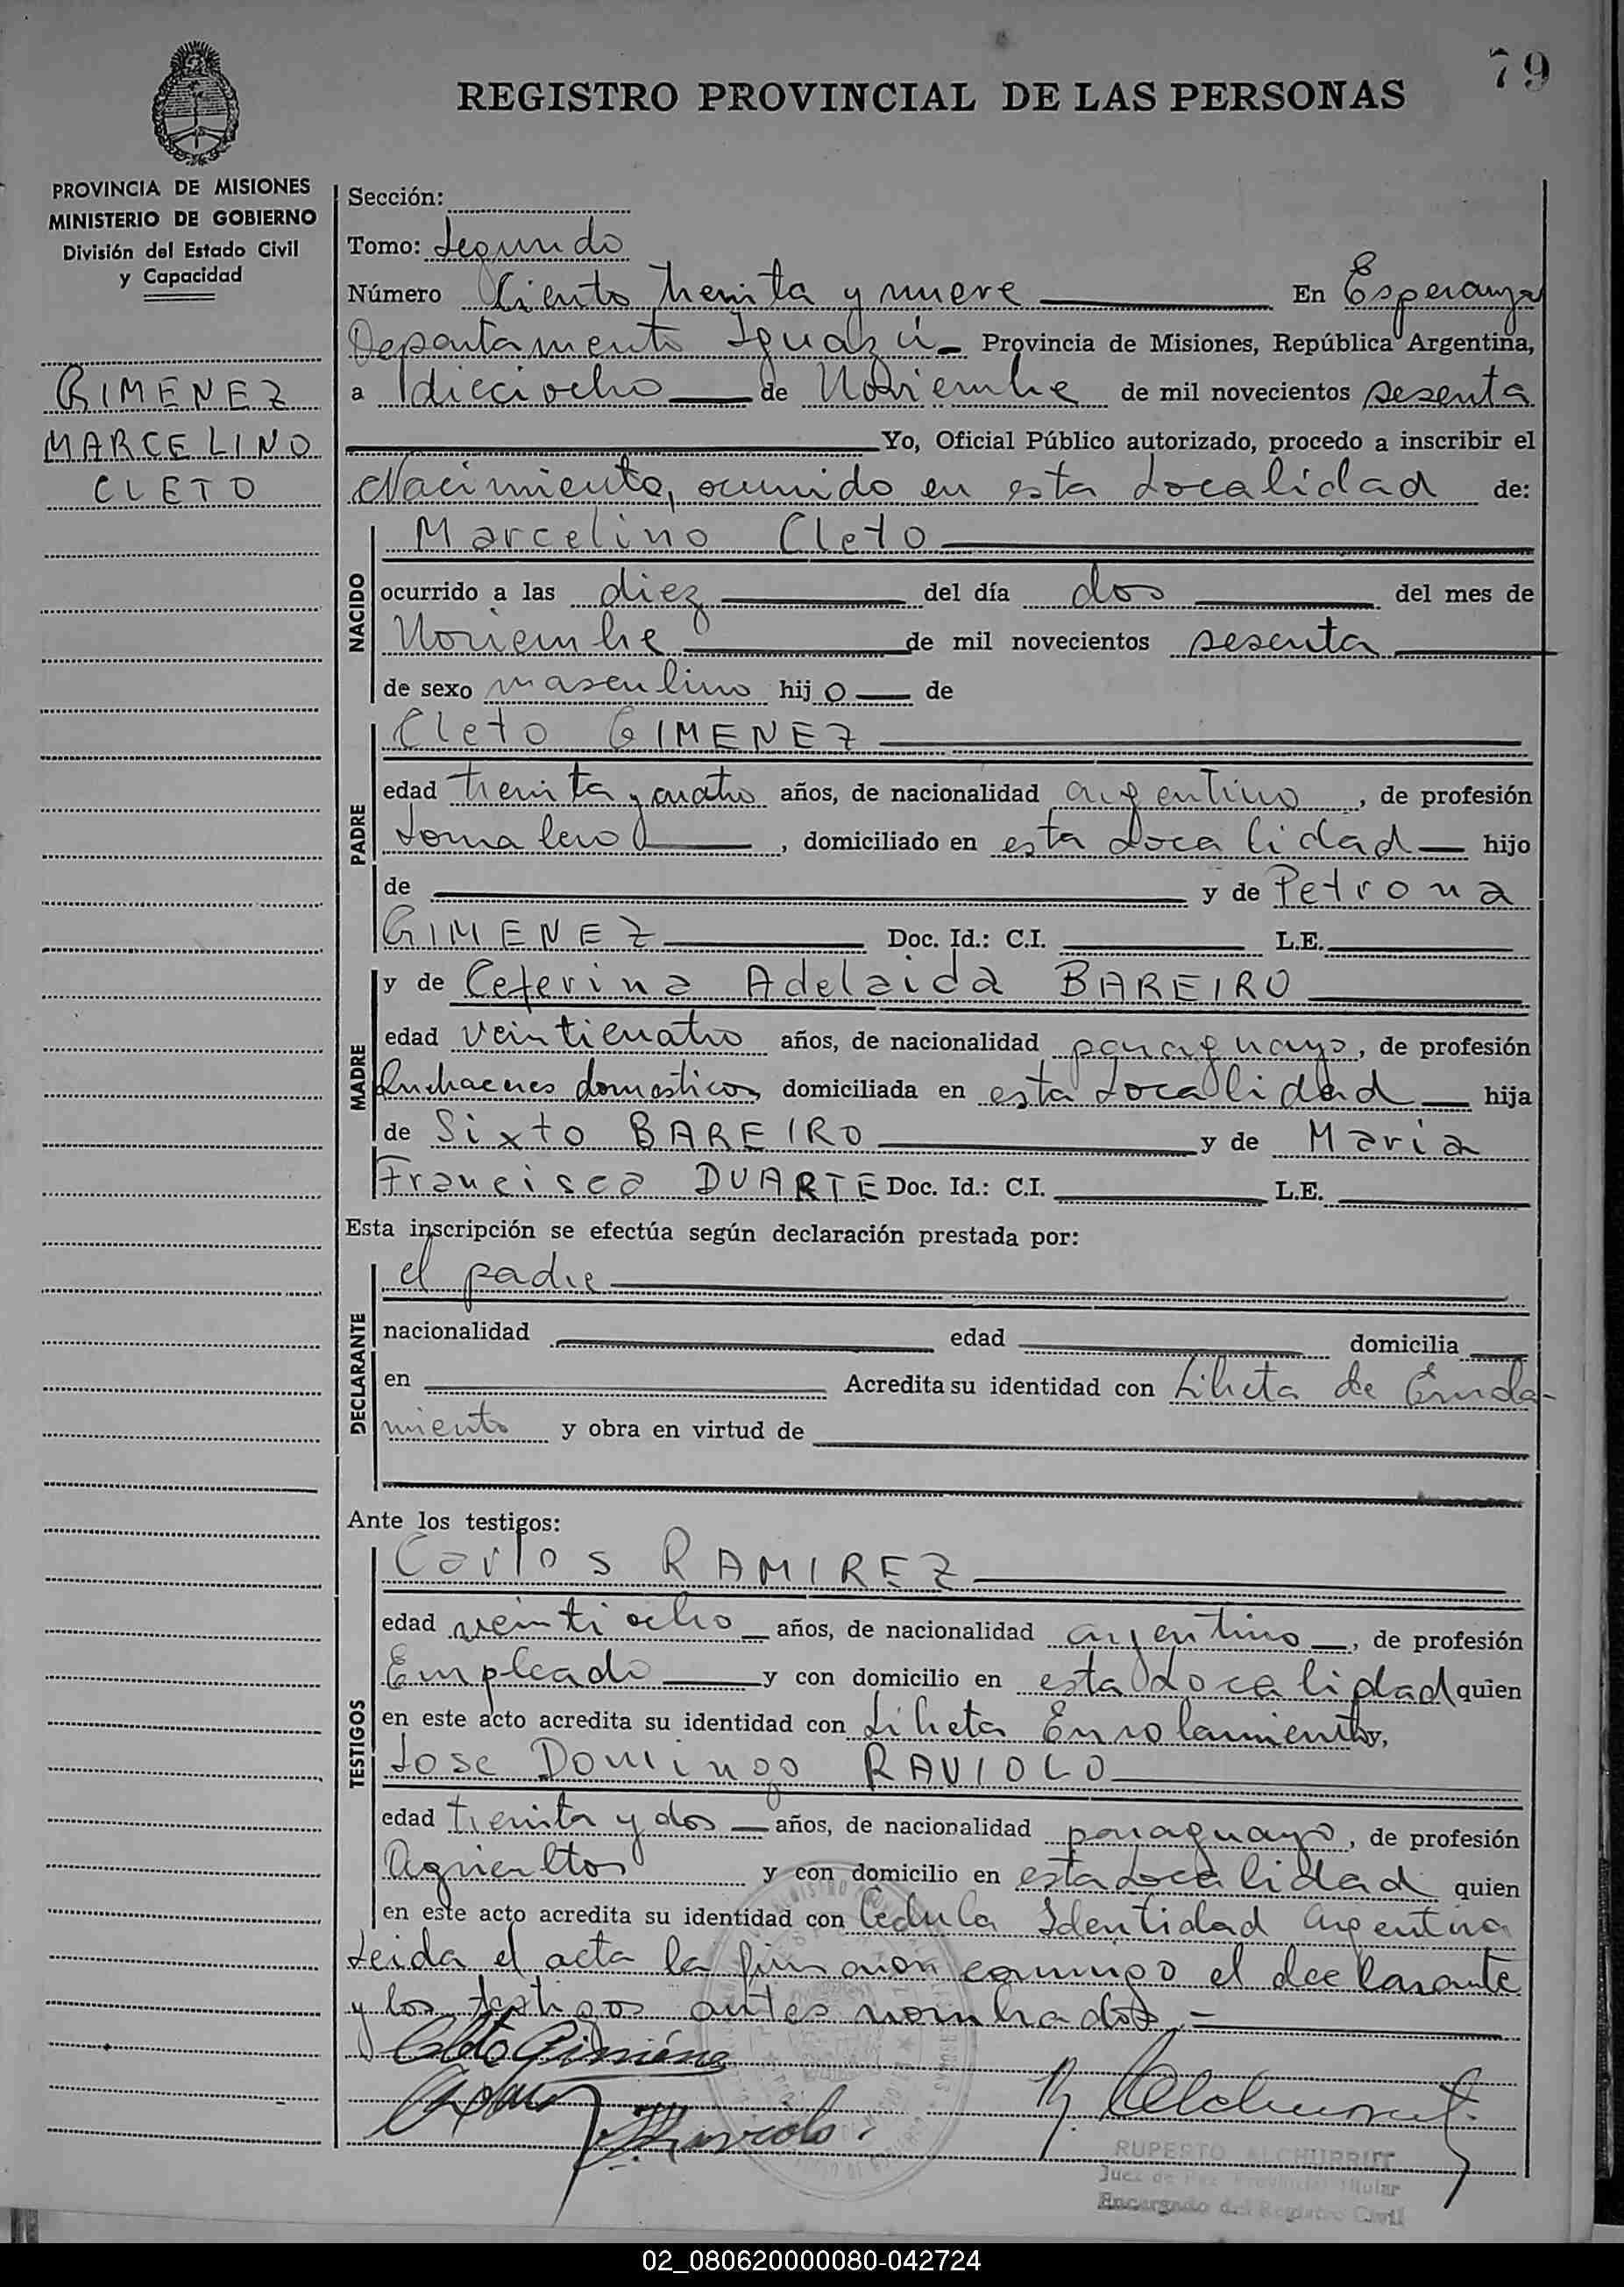 79
REGISTRO PROVINCIAL DE LAS PERSONAS
PROVINCIA DE MISIONES
MINISTERIO DE GOBIERNO
División del Estado Civil
y Capacidad
GIMENEZ
MARCELINO
CLETO
Sección:
Tomo: Segundo
Número Ciento treinta y nueve En Esperanza
Departamento Iguazú Provincia de Misiones, República Argentina,
a dieciocho de Noviembre de mil novecientos sesenta
Yo, Oficial Público autorizado, procedo a inscribir el
Nacimiento, ocurrido en esta Localidad de:
NACIDO
Marcelino Cleto
ocurrido a las diez del día dos del mes de
Noviembre de mil novecientos sesenta
de sexo masculino hijo de
PADRE
Cleto GIMENEZ
edad treinta y cuatro años, de nacionalidad argentino, de profesión
Jornalero, domiciliado en esta Localidad hijo
de y de Petrona
GIMENEZ Doc. Id.: C.I. L.E.
MADRE
y de Ceferina Adelaida BAREIRO
edad veinticuatro años, de nacionalidad paraguayo, de profesión
Quehaceres domesticos domiciliada en esta Localidad hija
de Sixto BAREIRO y de Maria
Francisca DUARTE Doc. Id.: C.I. L.E.
Esta inscripción se efectúa según declaración prestada por:
DECLARANTE
el padre
nacionalidad edad domicilia
en Acredita su identidad con Libreta de
miento y obra en virtud de
Ante los testigos:
TESTIGOS
Carlos RAMIREZ
edad veintiocho años, de nacionalidad argentino, de profesión
Empleado y con domicilio en esta Localidad quien
en este acto acredita su identidad con Libreta Enrolamiento y,
Jose Domingo RAVIOLO
edad treinta y dos años, de nacionalidad paraguayo, de profesión
Agricultor y con domicilio en esta Localidad quien
en este acto acredita su identidad con Cedula Identidad Argentina
Leida el acta la firmaron conmigo el declarante
y los testigos antes nombrados.=
Cleto Giménez
Raviolo
RUPERTO ALCHURRUT
Juez de Paz Provincial Titular
Encargado del Registro Civil
02_080620000080-042724